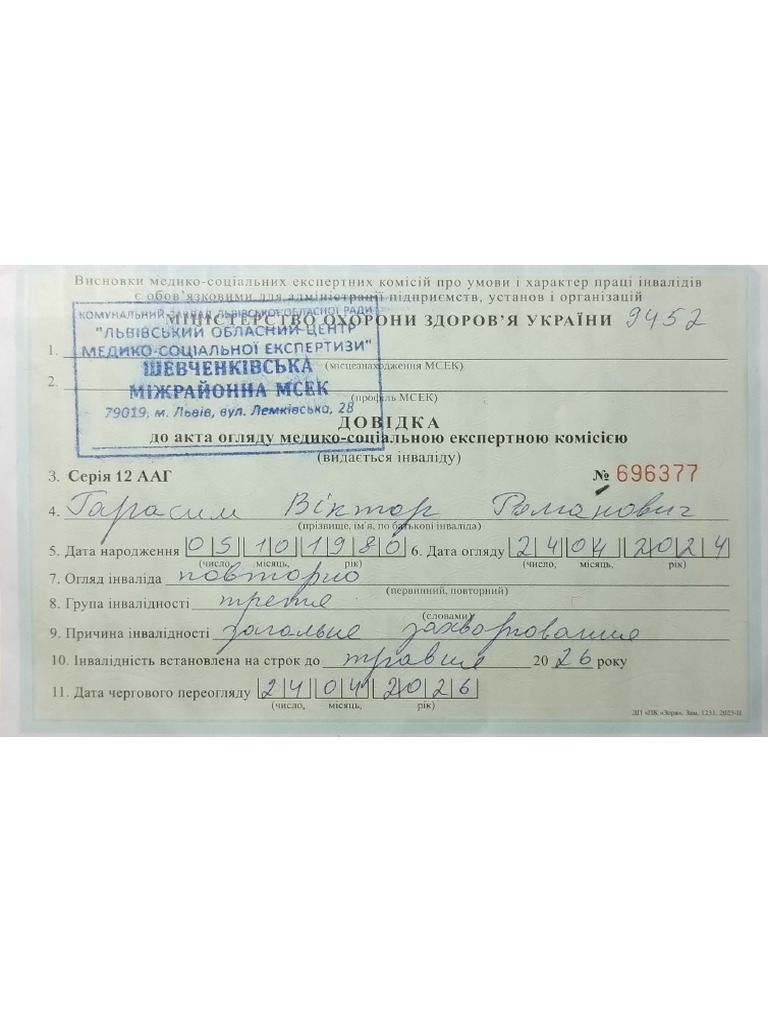 Висновки медико-соціальних експертних комісій про умови і характер праці інвалідів
є обов'язковими для адміністрації підприємств, установ і організацій
МІНІСТЕРСТВО ОХОРОНИ ЗДОРОВ'Я УКРАЇНИ 9452
КОМУНАЛЬНИЙ ЗАКЛАД ЛЬВІВСЬКОЇ ОБЛАСНОЇ РАДИ
"ЛЬВІВСЬКИЙ ОБЛАСНИЙ ЦЕНТР
МЕДИКО-СОЦІАЛЬНОЇ ЕКСПЕРТИЗИ"
ШЕВЧЕНКІВСЬКА
МІЖРАЙОННА МСЕК
79019, м. Львів, вул. Лемківська, 28
1.
(місцезнаходження МСЕК)
2.
(профіль МСЕК)
ДОВІДКА
до акта огляду медико-соціальною експертною комісією
(видається інваліду)
3. Серія 12 ААГ № 696377
4. Гарасим Віктор Романович
(прізвище, ім'я, по батькові інваліда)
5. Дата народження 05 10 1980 6. Дата огляду 24 04 2024
(число, місяць, рік) (число, місяць, рік)
7. Огляд інваліда повторно
(первинний, повторний)
8. Група інвалідності третя
(словами)
9. Причина інвалідності загальне захворювання
10. Інвалідність встановлена на строк до травня 2026 року
11. Дата чергового переогляду 24 04 2026
(число, місяць, рік)
ДП «ПК «Зоря». Зам. 1231. 2023-ІІ